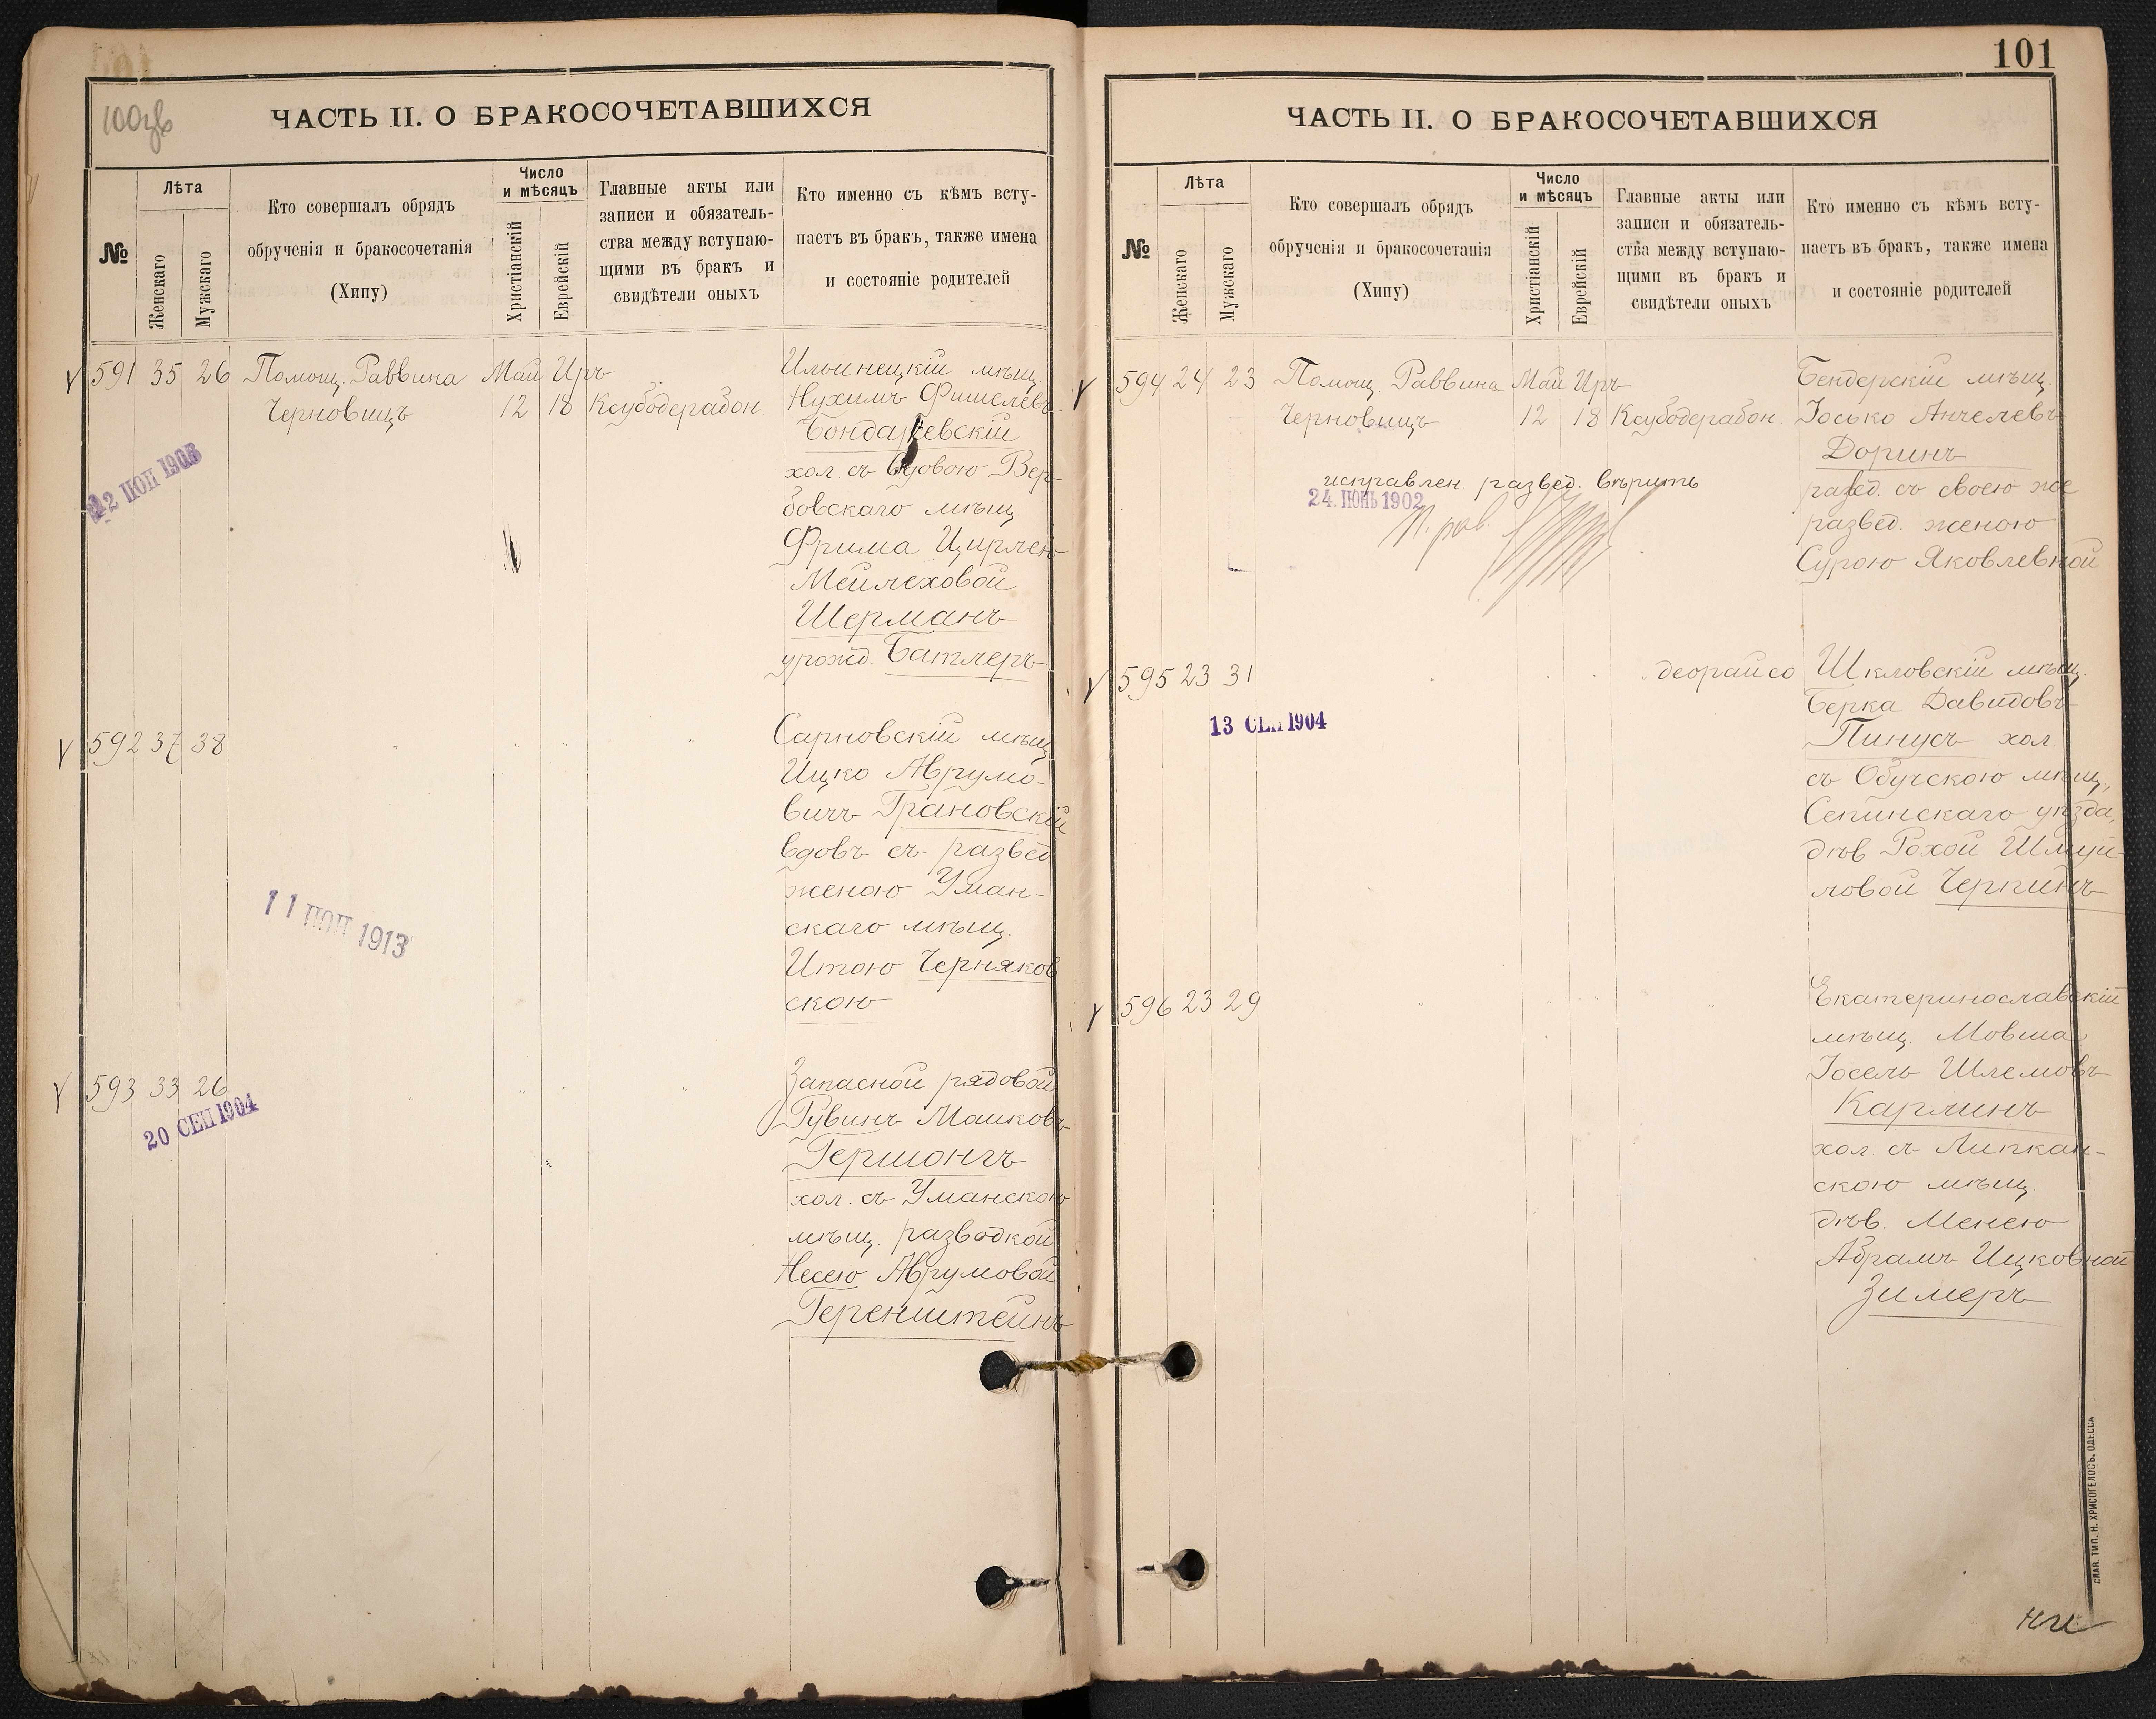 100об
ЧАСТЬ II. О БРАКОСОЧЕТАВШИХСЯ
№
Лѣта
Женскаго
Мужскаго
Кто совершалъ обрядъ
обрученія и бракосочетанія
(Хипу)
Число
и мѣсяцъ
Христіанскій
Еврейскій
Главные акты или
записи и обязатель-
ства между вступаю-
щими въ бракъ и
свидѣтели оныхъ
Кто именно съ кѣмъ всту-
паетъ въ бракъ, также имена
и состояніе родителей
591 35 26 Помощ. Раввина Май Иръ
Черновицъ 12 18 Ксубодерабон.
Ильинецкій мѣщ.
Нухимъ Фишелевъ
Бондаревскій
хол. съ вдовою Вер-
бовскаго мѣщ.
Фрима Цирлею
Мейлеховой
Шерманъ
урожд. Батлеръ
592 37 38
Сарновскій мѣщ.
Ицко Аврумо-
вичъ Грановскій
вдовъ съ развед.
женою Уман-
скаго мѣщ.
Итою Черняков
скою
11 ПОП 1913
593 33 26
20 СЕП 1904
Запасной рядовой
Рувинъ Машковъ
Гершонгъ
хол. съ Уманскою
мѣщ. разводкой
Несею Аврумовой
Геренштейнъ
101
ЧАСТЬ II. О БРАКОСОЧЕТАВШИХСЯ
№
Лѣта
Женскаго
Мужскаго
Кто совершалъ обрядъ
обрученія и бракосочетанія
(Хипу)
Число
и мѣсяцъ
Христіанскій
Еврейскій
Главные акты или
записи и обязатель-
ства между вступаю-
щими въ бракъ и
свидѣтели оныхъ
Кто именно съ кѣмъ всту-
паетъ въ бракъ, также имена
и состояніе родителей
594 24 23 Помощ. Раввина Май Иръ
Черновицъ 12 18 Ксубодерабон.
исправлен. развед. вѣрить
24. ІЮНЬ 1902
Бендерскій мѣщ.
Іосько Анчелевъ
Доринъ
развед. съ своею же
развед. женою
Сурою Яковлевной
595 23 31 деорайсо
13 СЕП 1904
Шкловскій мѣщ.
Берка Давидовъ
Пинусъ хол.
съ Обчускою мѣщ.,
Сенинскаго уѣзда,
дѣв. Рохой Шмуй-
ловой Чернинъ
596 23 29
Екатеринославскій
мѣщ. Мовша
Іосель Шлемовъ
Карлинъ
хол. съ Липкан-
скою мѣщ.
дѣв. Менею
Абрамъ Ицковной
Зимеръ
СЛАВ. ТИП. Н. ХРИСОГЕЛОСЪ, ОДЕССА